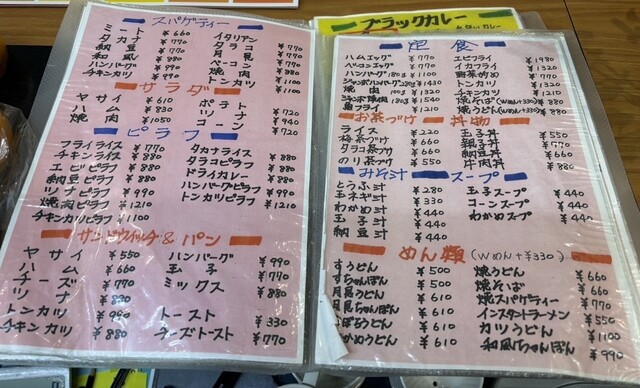 ブラックカレー
スパゲティー
ミート ¥770
タカナ ¥770
納豆 ¥770
和風 ¥880
ハンバーグ ¥990
チキンカツ
イタリアン
タラコ ¥770
月見 ¥770
ベーコン ¥770
焼肉
トンカツ ¥1100
サラダ
ヤサイ ¥610
ハム ¥830
焼肉 ¥1050
ポテト ¥720
ツナ ¥940
コーン ¥720
ピラフ
フライライス ¥770
チキンライス ¥880
エビピラフ ¥880
納豆ピラフ ¥880
ツナピラフ ¥990
焼肉ピラフ ¥1210
チキンカツピラフ ¥1100
タカナライス ¥880
タラコピラフ ¥880
ドライカレー ¥880
ハンバーグピラフ ¥990
トンカツピラフ ¥1210
サンドウィッチ & パン
ヤサイ ¥550
ハム ¥660
チーズ ¥770
ツナ ¥880
トンカツ ¥990
チキンカツ ¥880
ハンバーグ ¥990
玉子 ¥770
ミックス ¥880
トースト ¥330
チーズトースト ¥770
定食
ハムエッグ ¥770
ベーコンエッグ
ハンバーグ180g ¥1100
ジャンボハンバーグ240g ¥1420
焼肉 100g ¥1320
ジャンボ焼肉 180g ¥1540
魚フライ ¥1210
エビフライ ¥1980
イカフライ ¥1320
野菜炒め
トンカツ ¥1320
チキンカツ ¥1210
焼そば(Wめん+330) ¥880
焼うどん(Wめん+330) ¥880
お茶づけ
ライス ¥220
梅茶づけ ¥660
タラコ茶づけ ¥660
のり茶づけ ¥550
丼物
玉子丼 ¥550
親子丼 ¥770
納豆丼 ¥660
牛肉丼 ¥880
みそ汁
とうふ汁 ¥280
玉ネギ汁 ¥330
わかめ汁 ¥440
玉子汁 ¥440
納豆汁 ¥440
スープ
玉子スープ ¥440
コーンスープ ¥440
わかめスープ ¥440
めん類(Wめん+¥330)
すうどん ¥500
すちゃんぽん ¥500
月見うどん ¥610
月見ちゃんぽん ¥610
¥610
¥610
焼うどん ¥660
焼そば ¥660
焼スパゲティー ¥770
インスタントラーメン ¥550
カツうどん ¥1100
和風ちゃんぽん ¥880